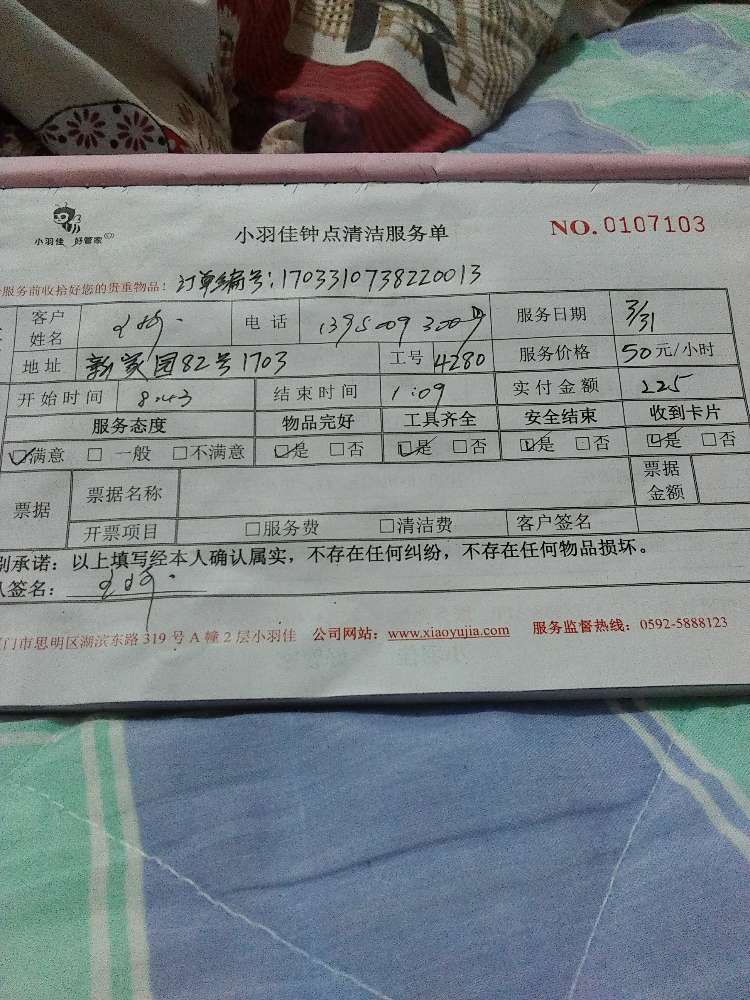 小羽佳 好管家
小羽佳钟点清洁服务单
NO. 0107103
服务前收拾好您的贵重物品！ 订单编号：1703310738220013
客户姓名 电话 服务日期 3/31
地址 新家园82号1703 工号 4280 服务价格 50元/小时
开始时间 8:43 结束时间 1:09 实付金额 225
服务态度 物品完好 工具齐全 安全结束 收到卡片
☑满意 □一般 □不满意 ☑是 □否 ☑是 □否 ☑是 □否 ☑是 □否
票据 票据名称 票据金额
开票项目 □服务费 □清洁费 客户签名
别承诺：以上填写经本人确认属实，不存在任何纠纷，不存在任何物品损坏。
人签名：
门市思明区湖滨东路319号A幢2层小羽佳 公司网站：www.xiaoyujia.com 服务监督热线：0592-5888123